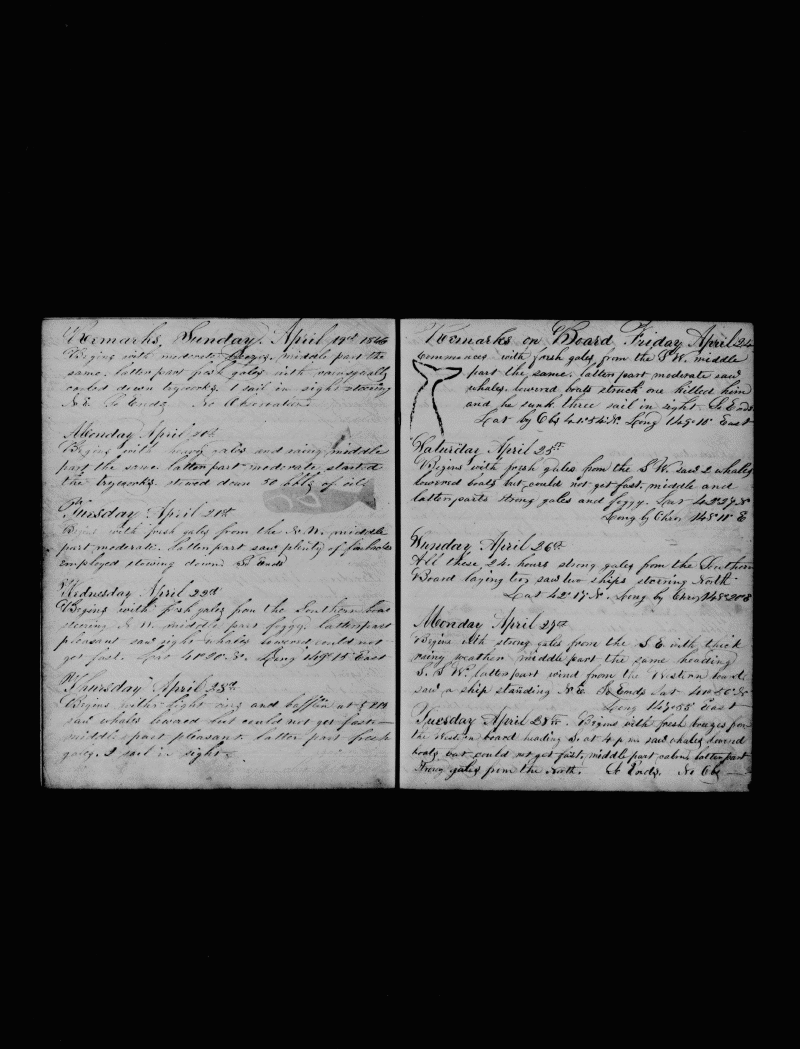 Remarks, Sunday, April 19th 1846
Begins with moderate breezes, middle part the
same. latter part fresh gales with rain squally
cooled down tryworks. 1 sail in sight steering
N E So Ends No Observation
Monday April 20th
Begins with heavy gales and rainy middle
part the same latter part moderate, started
the tryworks. stowed down 50 bbls of oil
Tuesday April 21th
Begins with fresh gales from the N.W. middle
part moderate. latter part saw plenty of finbacks
employed stowing down So Ends
Wednesday April 22d
Begins with fresh gales from the Southern board
steering N W. middle part foggy. latter part
pleasant saw right whales lowered could not
get fast. Lat 41°20' N. Long 149°15 East
Thursday April 23d
Begins with light airs and baffling at
saw whales lowered but could not get fast
middle part pleasant. latter part fresh
gales. 2 sail in sight
Remarks on Board Friday April 24
Commences with fresh gales from the S W. middle
part the same. latter part moderate saw
whales. lowered boats struck one killed him
and he sunk three sail in sight. So Ends
Lat by Obs 41°54 N. Long 149°15' East
Saturday April 25th
Begins with fresh gales from the S W. saw 2 whales
lowered boats but could not get fast. middle and
latter parts strong gales and foggy. Lat 42°27 N
Long by Chron 148°11' E
Sunday April 26th
All these 24 hours strong gales from the Southern
Board laying too saw two ships steering North
Lat 42°17 N. Long by Chron 148°20 E
Monday April 27th
Begins with strong gales from the S E with thick
rainy weather middle part the same heading
S. S W. latter part wind from the Western board
saw a ship standing N E So Ends Lat 41°50 N
Long 147°55' East
Tuesday April 28th. Begins with fresh breezes from
the Western board heading S. at 4 p m saw whales lowered
boats but could not get fast. middle part calm latter part
strong gales from the North. So Ends. No Obs